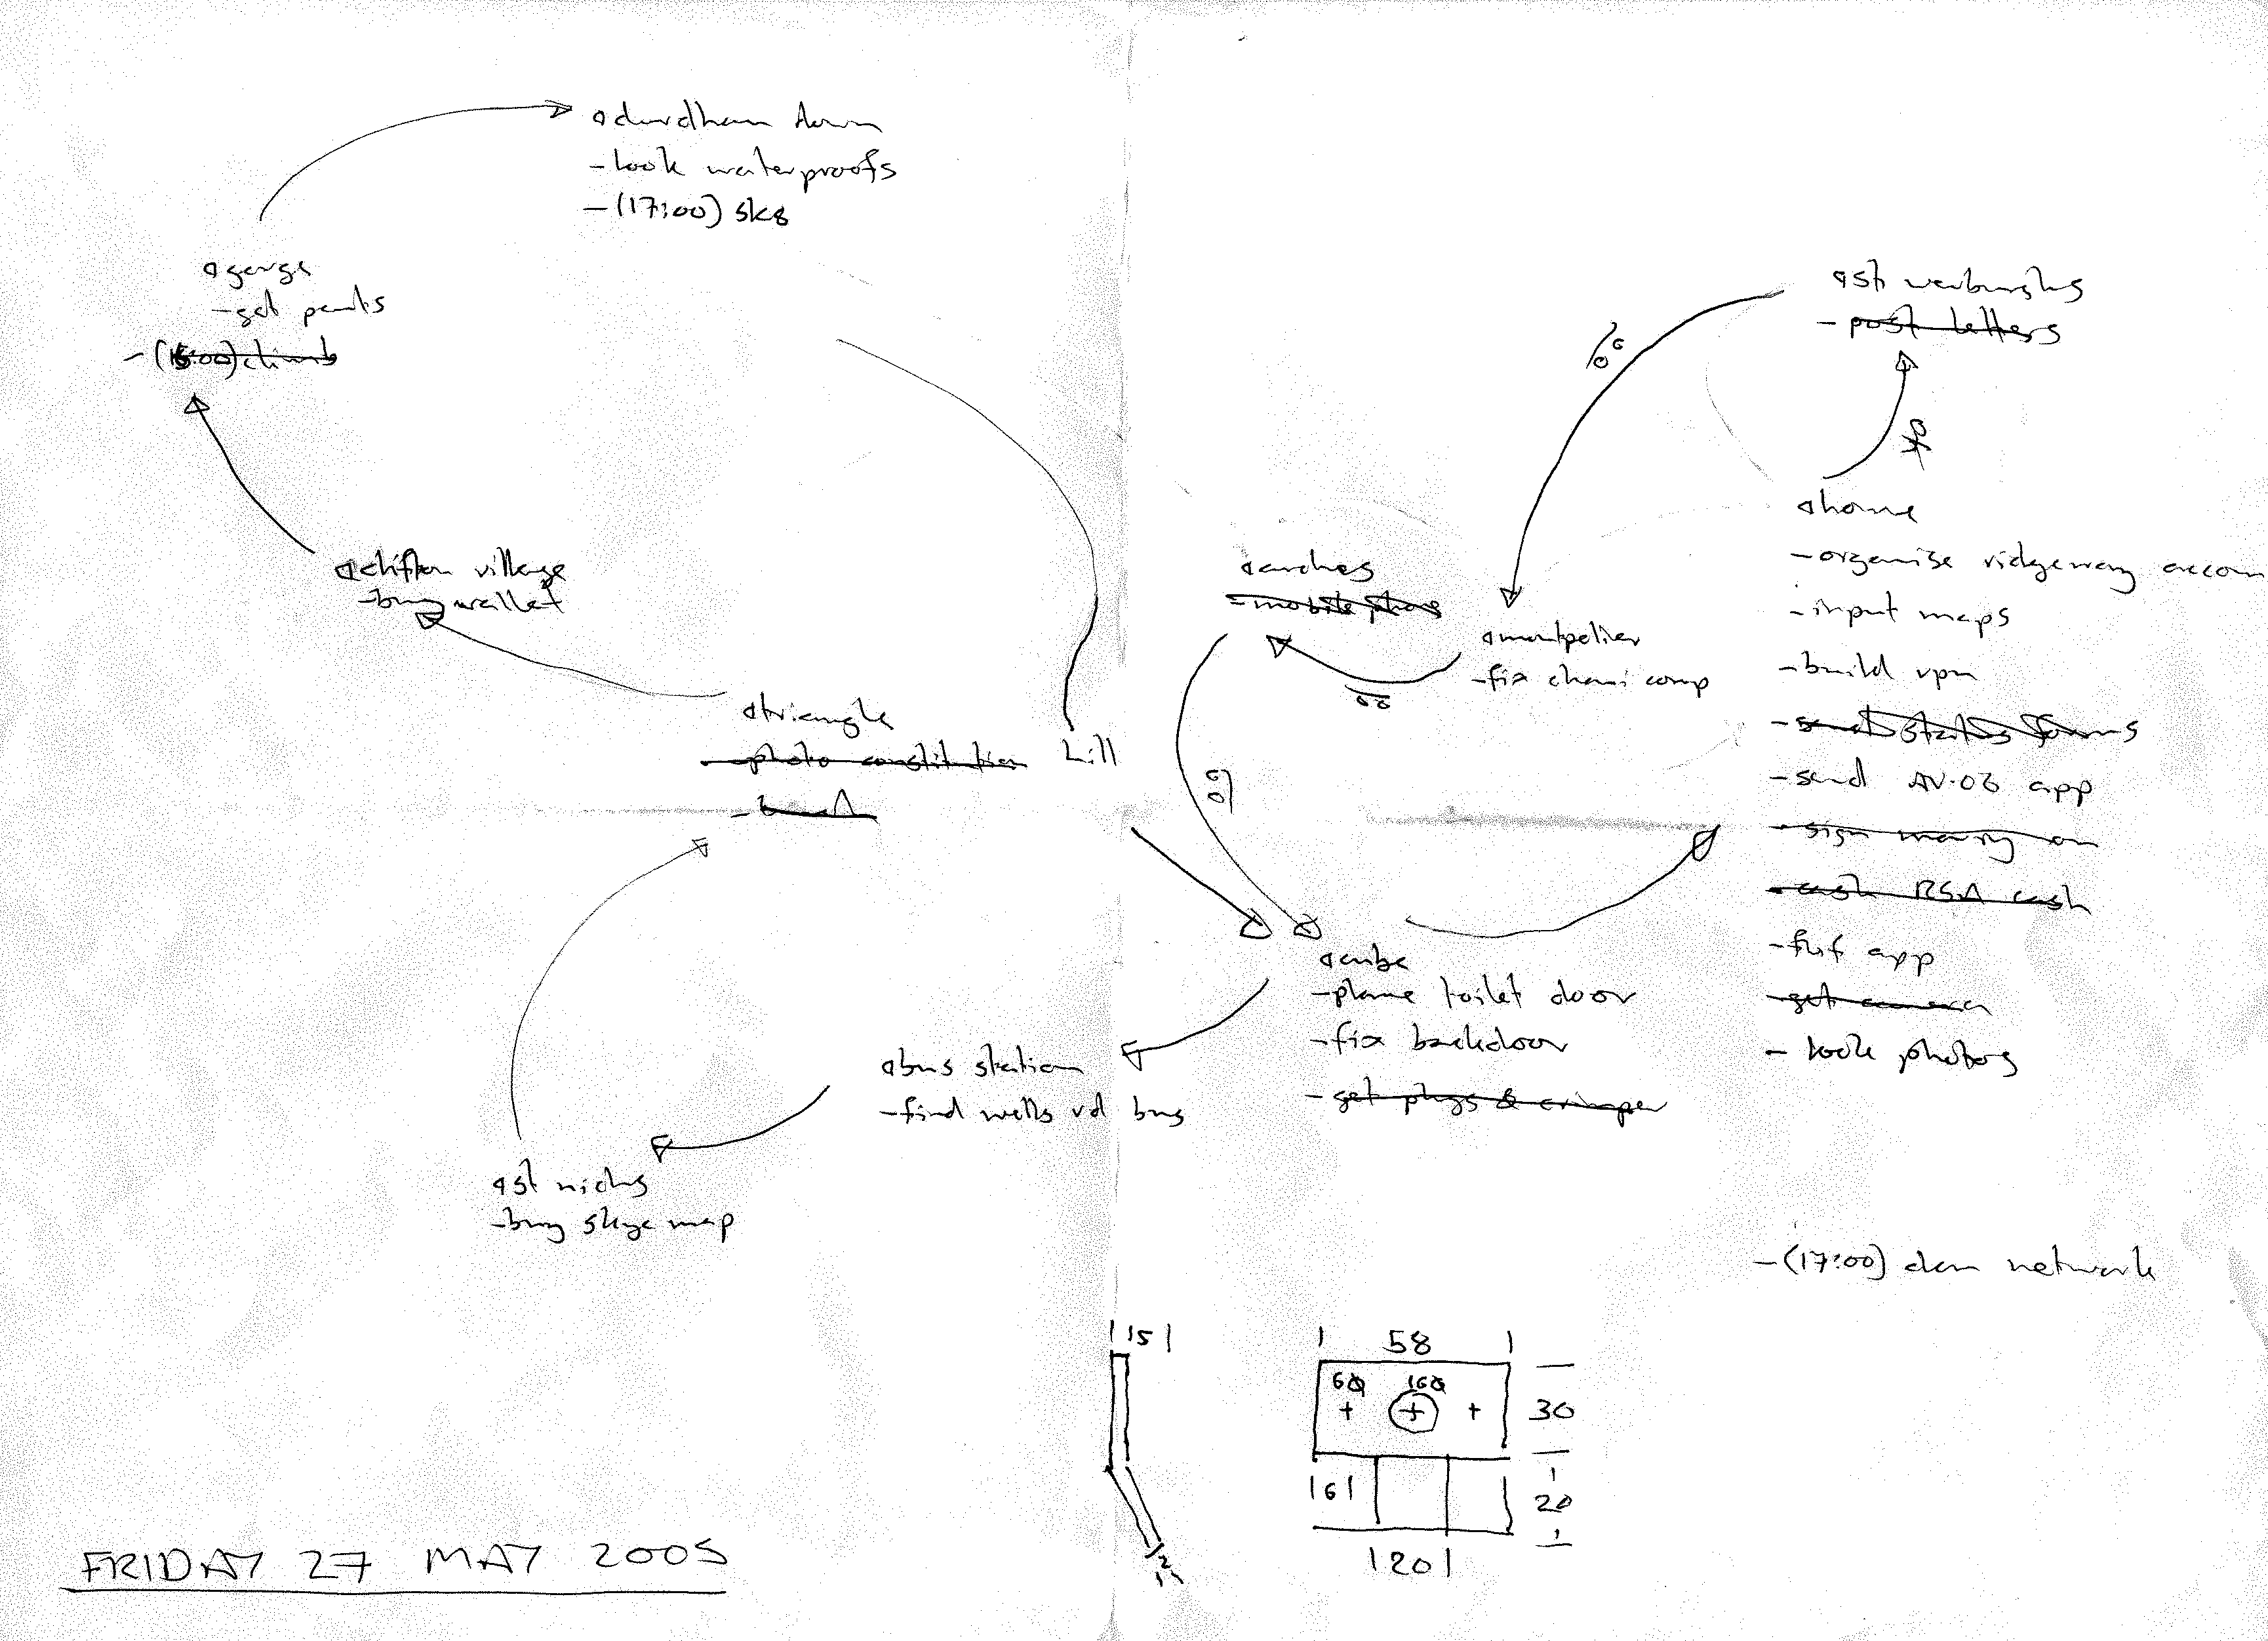 durdham down
- look waterproofs
- (17:00) sk8
gorge
- get pants
- (15:00) climb
clifton village
- buy wallet
triangle
- photo constitution hill
st nichs
- buy skye map
bus station
- find wells rd bus
cube
- plane toilet door
- fix backdoor
- get plugs & crimper
arches
- mobile phone
montpelier
- fix chani comp
st werburghs
- post letters
home
- organise ridgeway accom
- input maps
- build vpn
- send forms
- send AV.06 app
- sign on
- cash RSA cash
- app
- get camera
- look photos
- (17:00) network
|15|
| 58 |
6Ø 16Ø
30
|6|
20
|20|
2
FRIDAY 27 MAY 2005